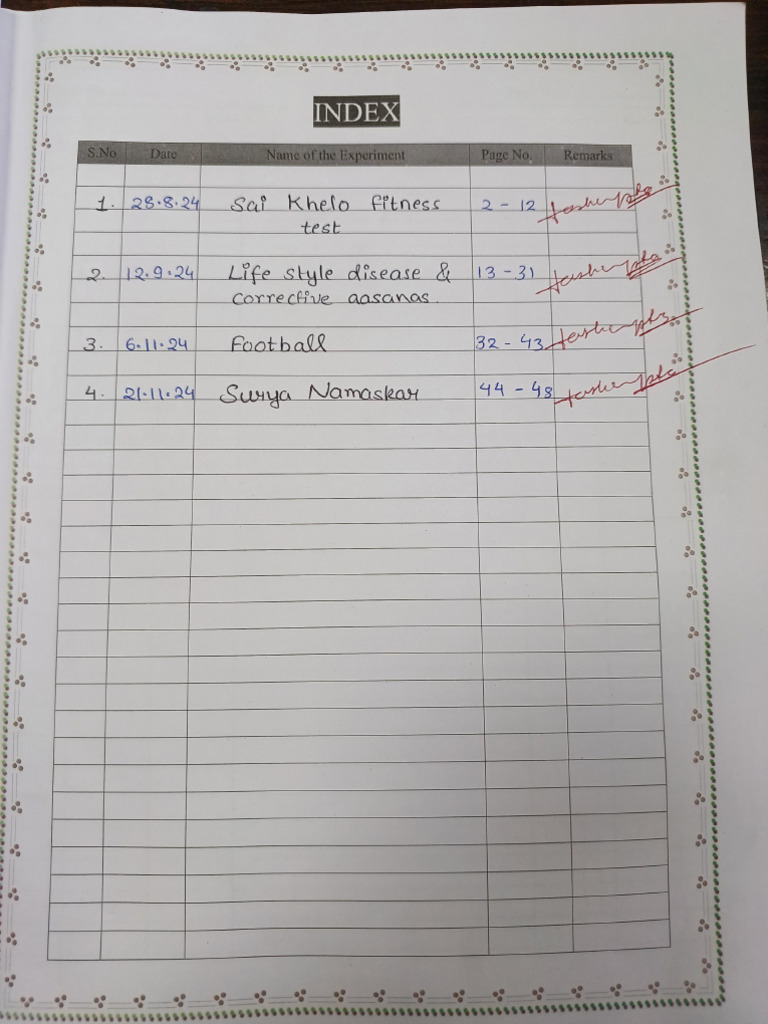 INDEX
S.No Date Name of the Experiment Page No. Remarks
1. 28.8.24 Sai Khelo fitness 2 - 12
test
2. 12.9.24 Life style disease & 13 - 31
corrective aasanas.
3. 6.11.24 Football 32 - 43
4. 21.11.24 Surya Namaskar 44 - 48